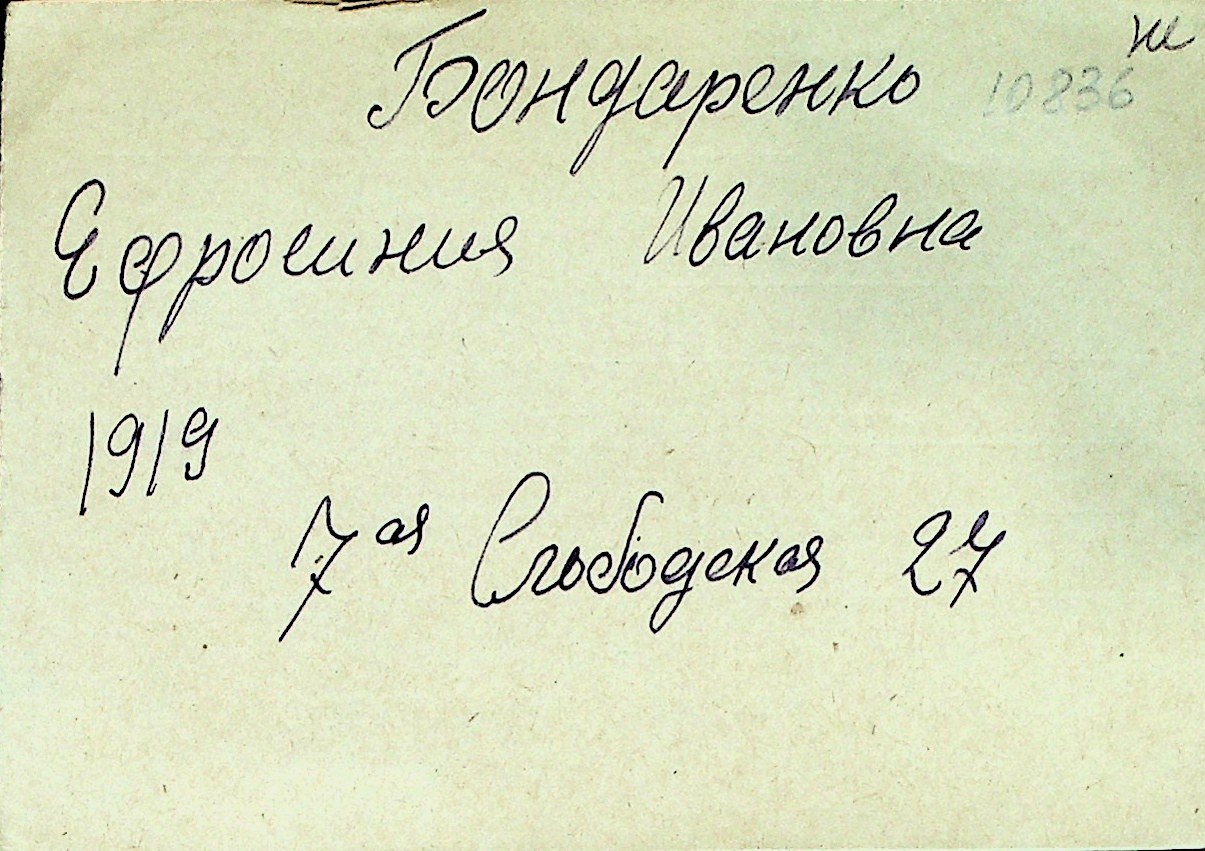 Бондаренко 10836
Ефросиния Ивановна
1919
7ая Слободская 27